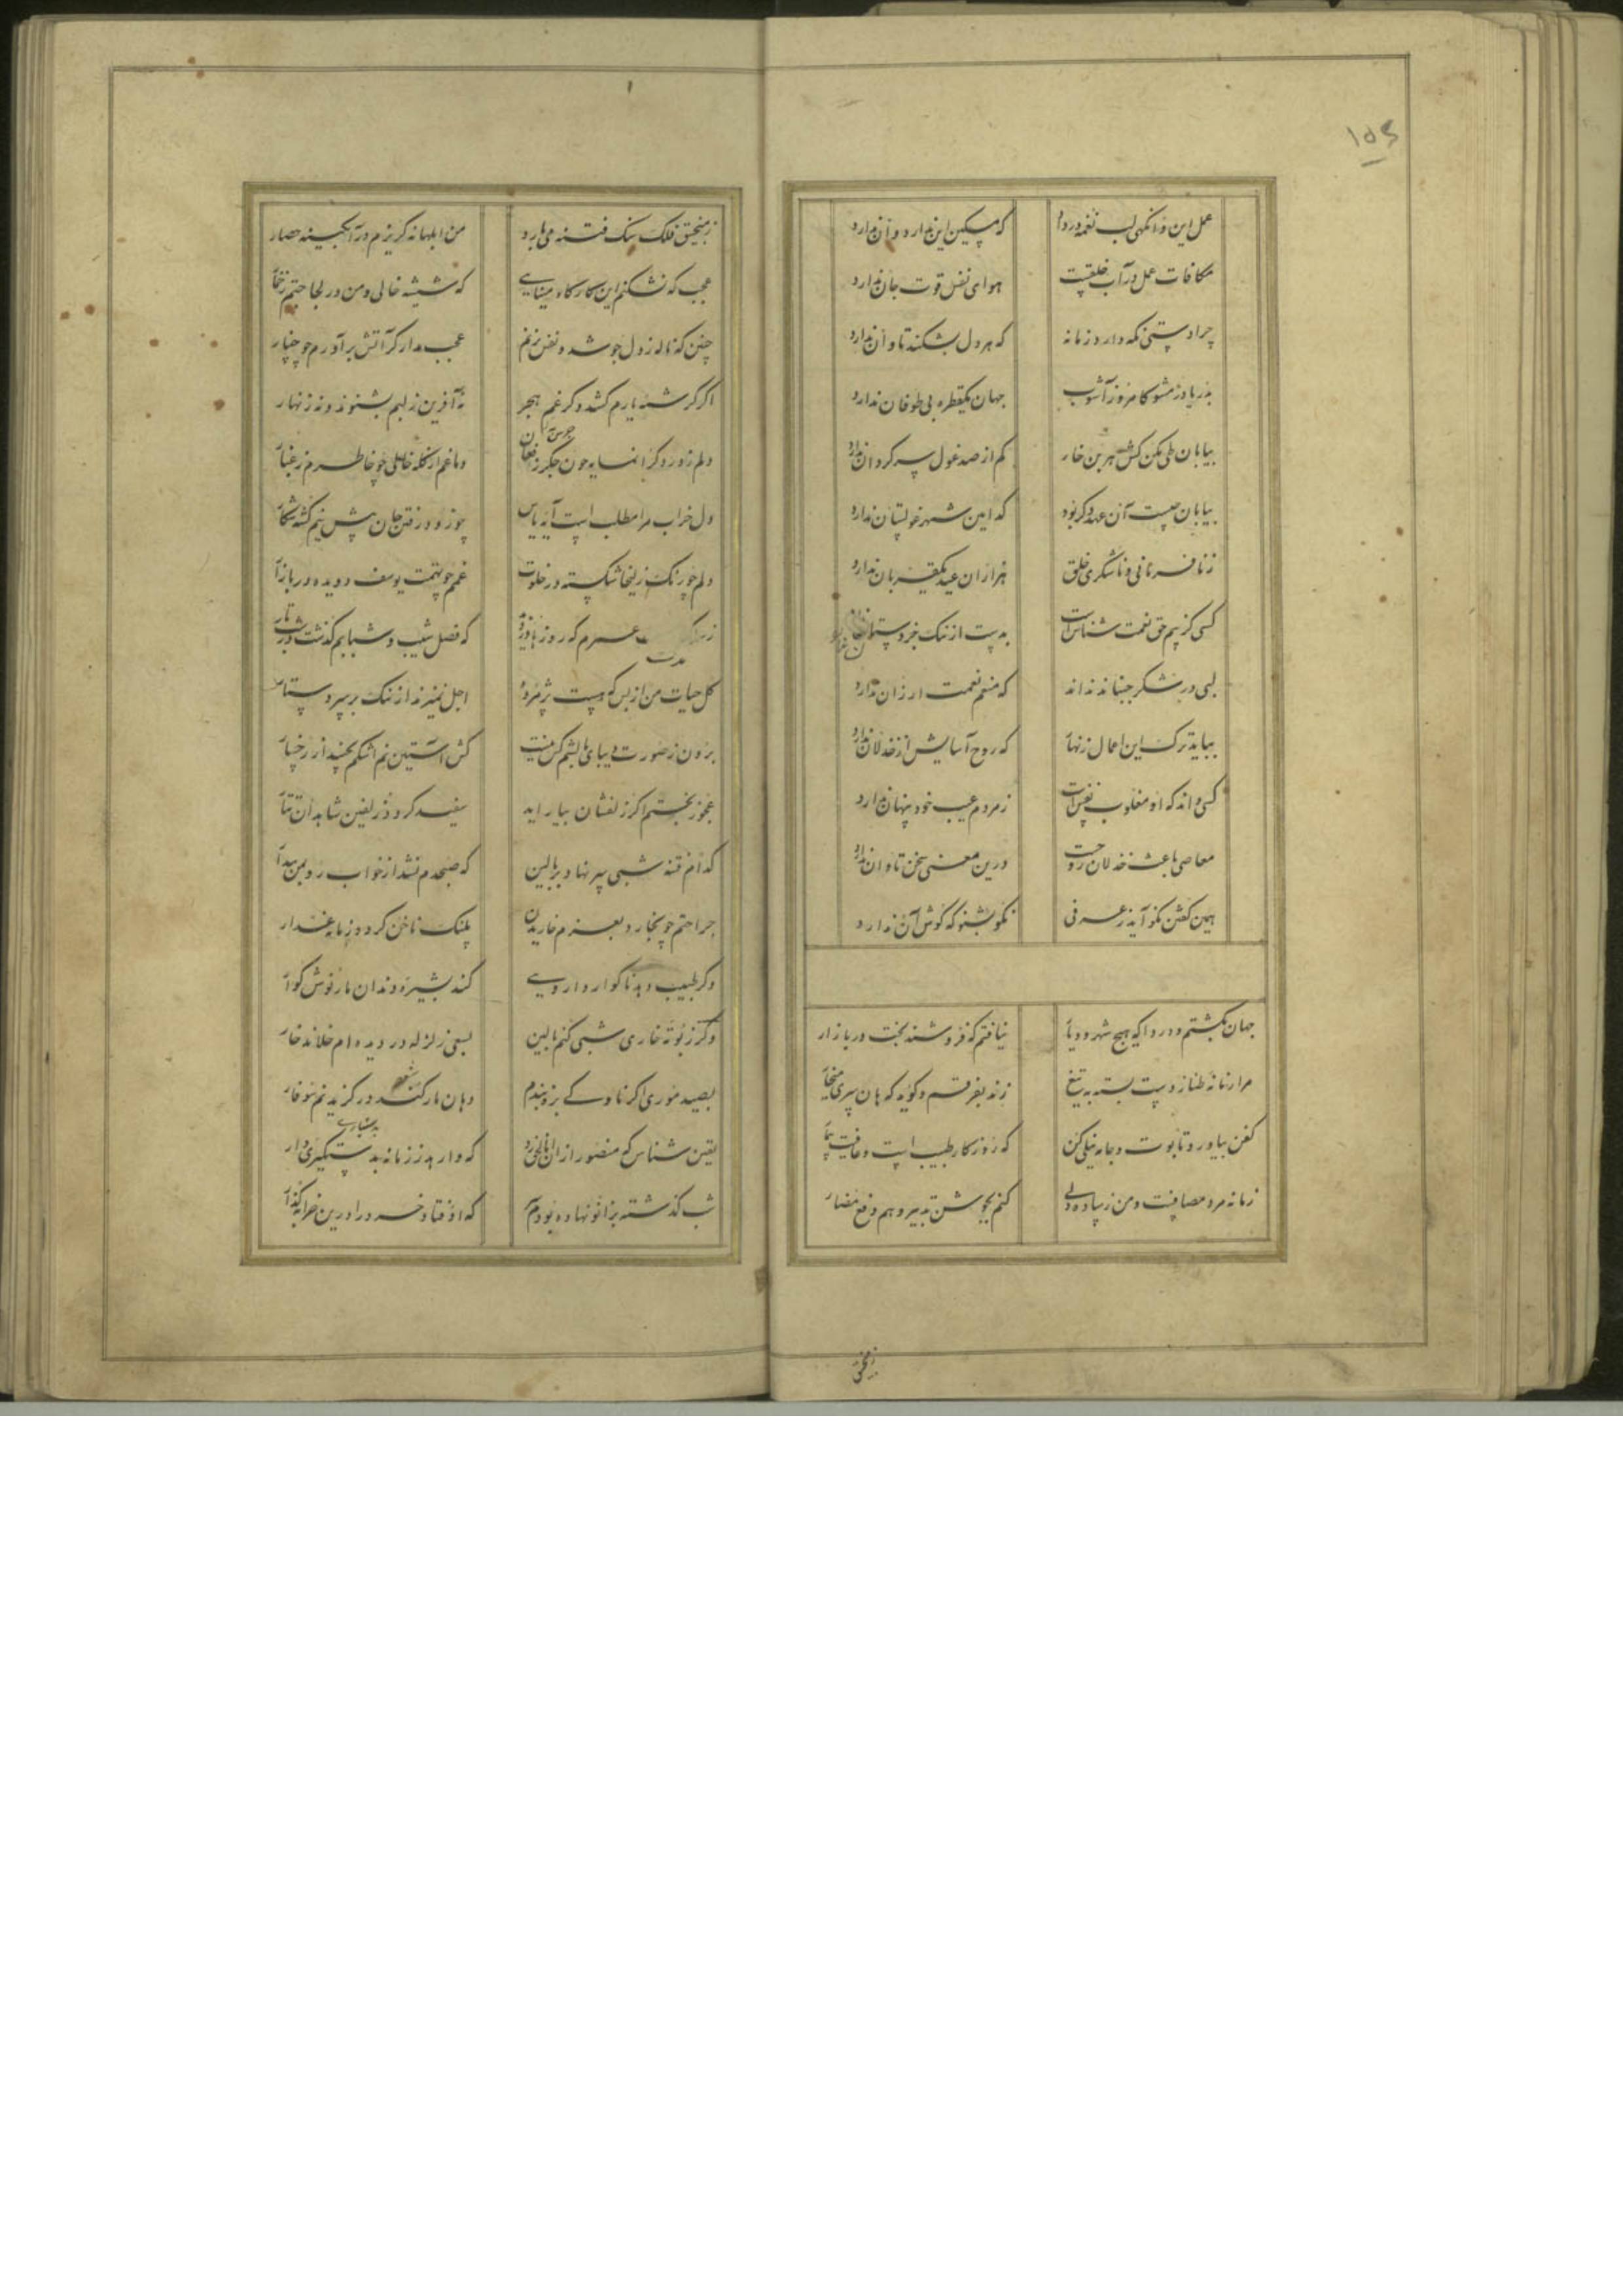 ۱۵۶
عمل این و آنگهی لب نغمه‌ورد که مسکین این ندارد و آن ندارد
مکافات عمل در آب خلقیست هوای نفس قوت جان ندارد
چرا دستی نگه دارد زمانه که هر دل بشکند تاوان ندارد
بدریا در مشو کامروز آشوب جهان یکقطره بی طوفان ندارد
بیابان طی مکن کش هر بن خار کم از صد غول سرگردان ندارد
بیابان چیست آن عهد دگر بود که امین شهر غولستان ندارد
ز نافرمانی و ناشکری خلق هزاران عید یکقربان ندارد
کسی کز بیم حق نعمت شناس است
لبی در شکر جنباند نداند که منعم نعمت ارزان ندارد
بباید ترک این اعمال زنهار که روح آسایش از خذلان ندارد
کسی داند که او مغلوب نفس است ز مردم عیب خود پنهان ندارد
معاصی باعث خذلان روحست درین معنی سخن تاوان ندارد
همین گفتن نکو آید ز عرفی نکو بشنو که گوش آن ندارد
جهان بگشتم و دردا که هیچ شهر و دیار نیافتم که فروشند بخت در بازار
مرا زمانه طناز دست بسته به تیغ زند بفرقم و گوید که هان سری میخار
کفن بیاور و تابوت و جامه نیلی کن که روزگار طبیب است و عافیت بیمار
زمانه مرد مصافست و من ز ساده دلی کنم بجوشن تدبیر وهم دفع مضار
ز منجنیق فلک سنگ فتنه می‌بارد من ابلهانه گریزم در آبگینه حصار
عجب که نشکنم این کارگاه مینایی که شیشه خالی و من در لجاجتم ز خمار
چنین که ناله ز دل جوشد و نفس نزنم عجب مدار گر آتش برآورم چو چنار
اگر کرشمه یارم کشد و گر غم هجر نه آفرین ز لبم بشنوند و نه زنهار
دلم ز درد گرانمایه چون جگر ز فغان دماغم از گله خالی چو خاطرم ز غبار
دل خراب مرا مطلب است آیه یاس
دلم چو رنگ زلیخا شکسته در خلوت غمم چو تهمت یوسف دویده در بازار
که فصل شیب و شبابم گذشت در شب تار
گل حیات من از بس که هست پژمرده اجل نمیزند از ننگ بر سر دستار
برون ز صورت دیبای بالشم کس نیست کش آستین نم اشکم بچیند از رخسار
عجوز بختم اگر زلفشان بیاراید سفید گردد زلفین شاهدان تتار
کدام فتنه شبی سر نهاد بر بالین که صبحدم نشد از خواب رو بمن بیدار
جراحتم چو بخارد بعزم خاریدن پلنگ ناخن گردد زمانه غدار
وگر طبیب دهد ناگوار دارویی کند بشیره دندان مار نوش گوار
وگر ز بوته خاری شبی کنم بالین بسعی زلزله در دیده‌ام خلاند خار
بصید موری اگر ناوکی بزه بندم دهان مار شود در گزیدنم سوفار
یقین شناس که منصور از آن اناالحق زد که وارهد ز زمانه بدستگیری دار
شب گذشته بزانو نهاده بودم سر که اوفتاد خرد را درین خرابه گذار
ز منجنیق